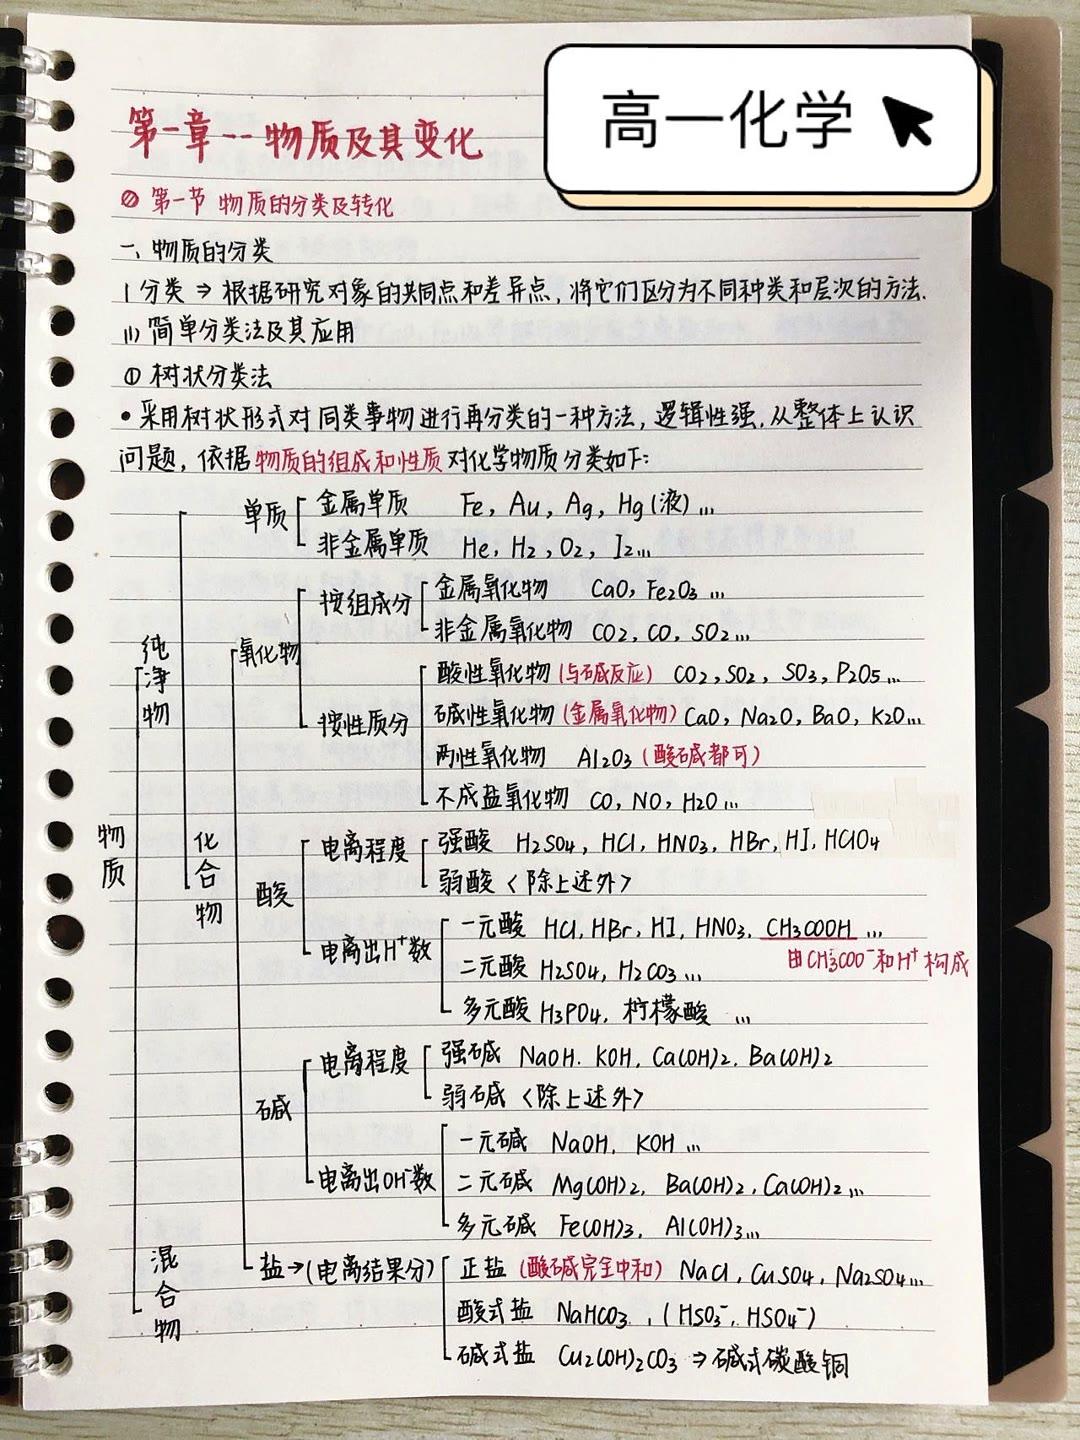 高一化学
第一章--物质及其变化
第一节 物质的分类及转化
一、物质的分类
1 分类 ⇒ 根据研究对象的共同点和差异点,将它们区分为不同种类和层次的方法.
(1) 简单分类法及其应用
① 树状分类法
• 采用树状形式对同类事物进行再分类的一种方法,逻辑性强.从整体上认识
问题,依据物质的组成和性质对化学物质分类如下:
单质 金属单质 Fe, Au, Ag, Hg(液) ...
非金属单质 He, H2, O2, I2...
按组成分 金属氧化物 CaO, Fe2O3 ...
非金属氧化物 CO2, CO, SO2...
纯净物
氧化物
酸性氧化物 (与碱反应) CO2, SO2, SO3, P2O5 ...
按性质分 碱性氧化物 (金属氧化物) CaO, Na2O, BaO, K2O...
两性氧化物 Al2O3 (酸碱都可)
不成盐氧化物 CO, NO, H2O ...
物质
化合物
酸
电离程度 强酸 H2SO4, HCl, HNO3, HBr, HI, HClO4
弱酸 <除上述外>
电离出H+数 一元酸 HCl, HBr, HI, HNO3. CH3COOH ...
由CH3COO-和H+构成
二元酸 H2SO4, H2CO3 ...
多元酸 H3PO4, 柠檬酸 ...
碱
电离程度 强碱 NaOH. KOH, Ca(OH)2, Ba(OH)2
弱碱 <除上述外>
电离出OH-数 一元碱 NaOH, KOH ...
二元碱 Mg(OH)2, Ba(OH)2, Ca(OH)2 ...
多元碱 Fe(OH)3, Al(OH)3...
混合物
盐→(电离结果分) 正盐 (酸碱完全中和) NaCl, CuSO4, Na2SO4...
酸式盐 NaHCO3, (HSO3-, HSO4-)
碱式盐 Cu2(OH)2CO3 ⇒ 碱式碳酸铜